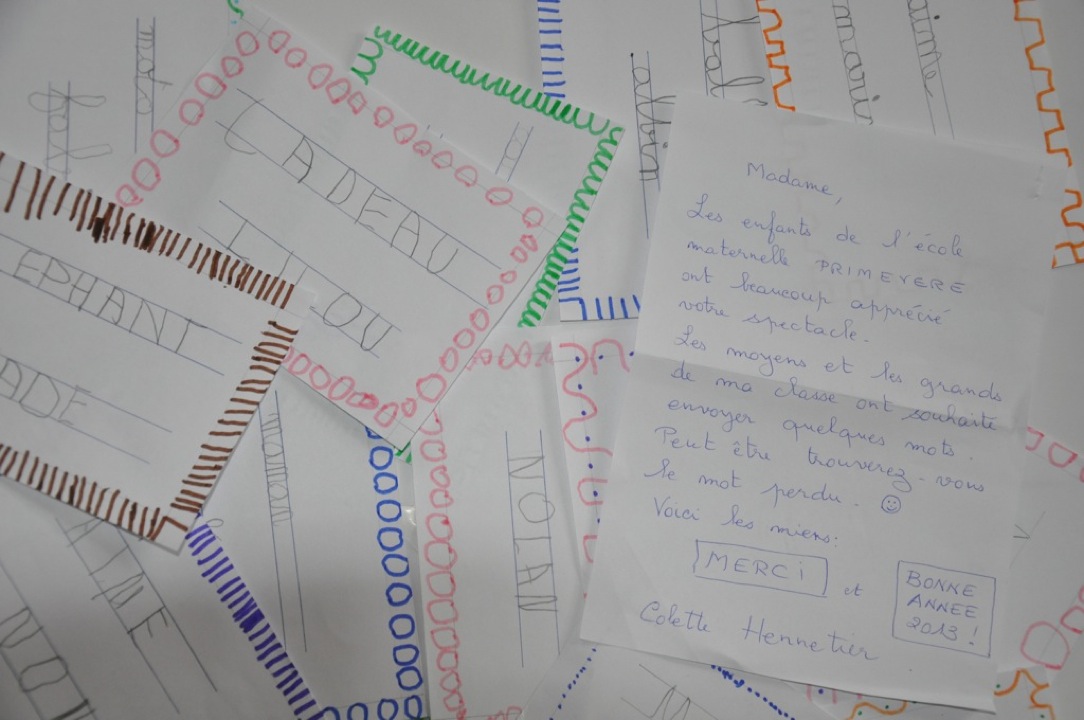 Madame,
Les enfants de l'école
maternelle PRIMEVERE
ont beaucoup apprécié
votre spectacle.
Les moyens et les grands
de ma classe ont souhaité
envoyer quelques mots.
Peut être trouverez-vous
le mot perdu. ☺
Voici les miens:
MERCi et
BONNE
ANNEE
2013 !
Colette Hennetier.
CADEAU
EPHANT
ADE
NOLAN
maman